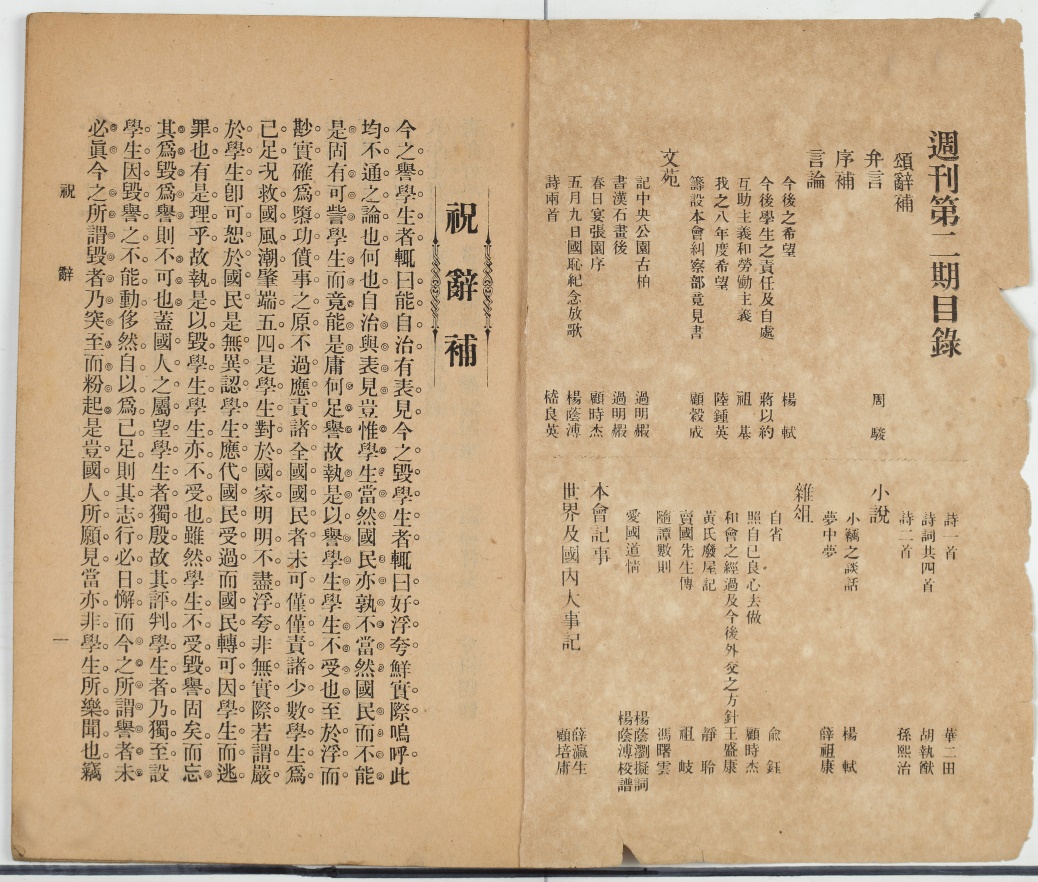 週刊第二期目錄
頌辭補
弁言 周駿
序補
言論
今後之希望 楊軾
今後學生之責任及自處 蔣以約
互助主義和勞働主義 祖基
我之八年度希望 陸鍾英
籌設本會糾察部意見書 顧穀成
文苑
記中央公園古柏 過明嘏
書漢石畫後 過明嘏
春日宴張園序 顧時杰
五月九日國恥紀念放歌 楊蔭溥
詩兩首 嵇良英
詩一首 華二田
詩詞共四首 胡執猷
詩二首 孫熙治
小說
小竊之談話 楊軾
夢中夢 薛祖康
雜俎
自省 俞鈺
照自己良心去做 顧時杰
和會之經過及今後外交之方針 王盛康
黃氏廢屋記 靜聆
賣國先生傳 祖岐
隨譚數則 馮曙雲
愛國道情 楊蔭瀏擬詞 楊蔭溥校譜
本會記事
世界及國內大事記 薛瀛生 顧培庸
祝辭補
今之譽學生者輒曰能自治有表見今之毀學生者輒曰好浮夸鮮實際嗚呼此
均不通之論也何也自治與表見豈惟學生當然國民亦孰不當然國民而不能
是固有可訾學生而竟能是庸何足譽故執是以譽學生學生不受也至於浮而
尠實確爲墮功僨事之原不過應責諸全國國民者未可僅僅責諸少數學生爲
已足况救國風潮肇端五四是學生對於國家明明不盡浮夸非無實際若謂嚴
於學生卽可恕於國民是無異認學生應代國民受過而國民轉可因學生而逃
罪也有是理乎故執是以毀學生學生亦不受也雖然學生不受毀譽固矣而忘
其爲毀爲譽則不可也蓋國人之屬望學生者獨殷故其評判學生者乃獨至設
學生因毀譽之不能動侈然自以爲已足則其志行必日懈而今之所謂譽者未
必眞今之所謂毀者乃突至而粉起是豈國人所願見當亦非學生所樂聞也竊
祝辭 一